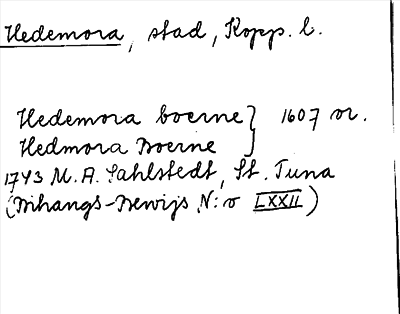 Hedemora, stad, Kopp. l.
Hedemora boerne } 1607 or.
Hedmora Boerne
1743 M. A. Sahlstedt, St. Tuna
(Bihangs-Bewijs N:o LXXII)